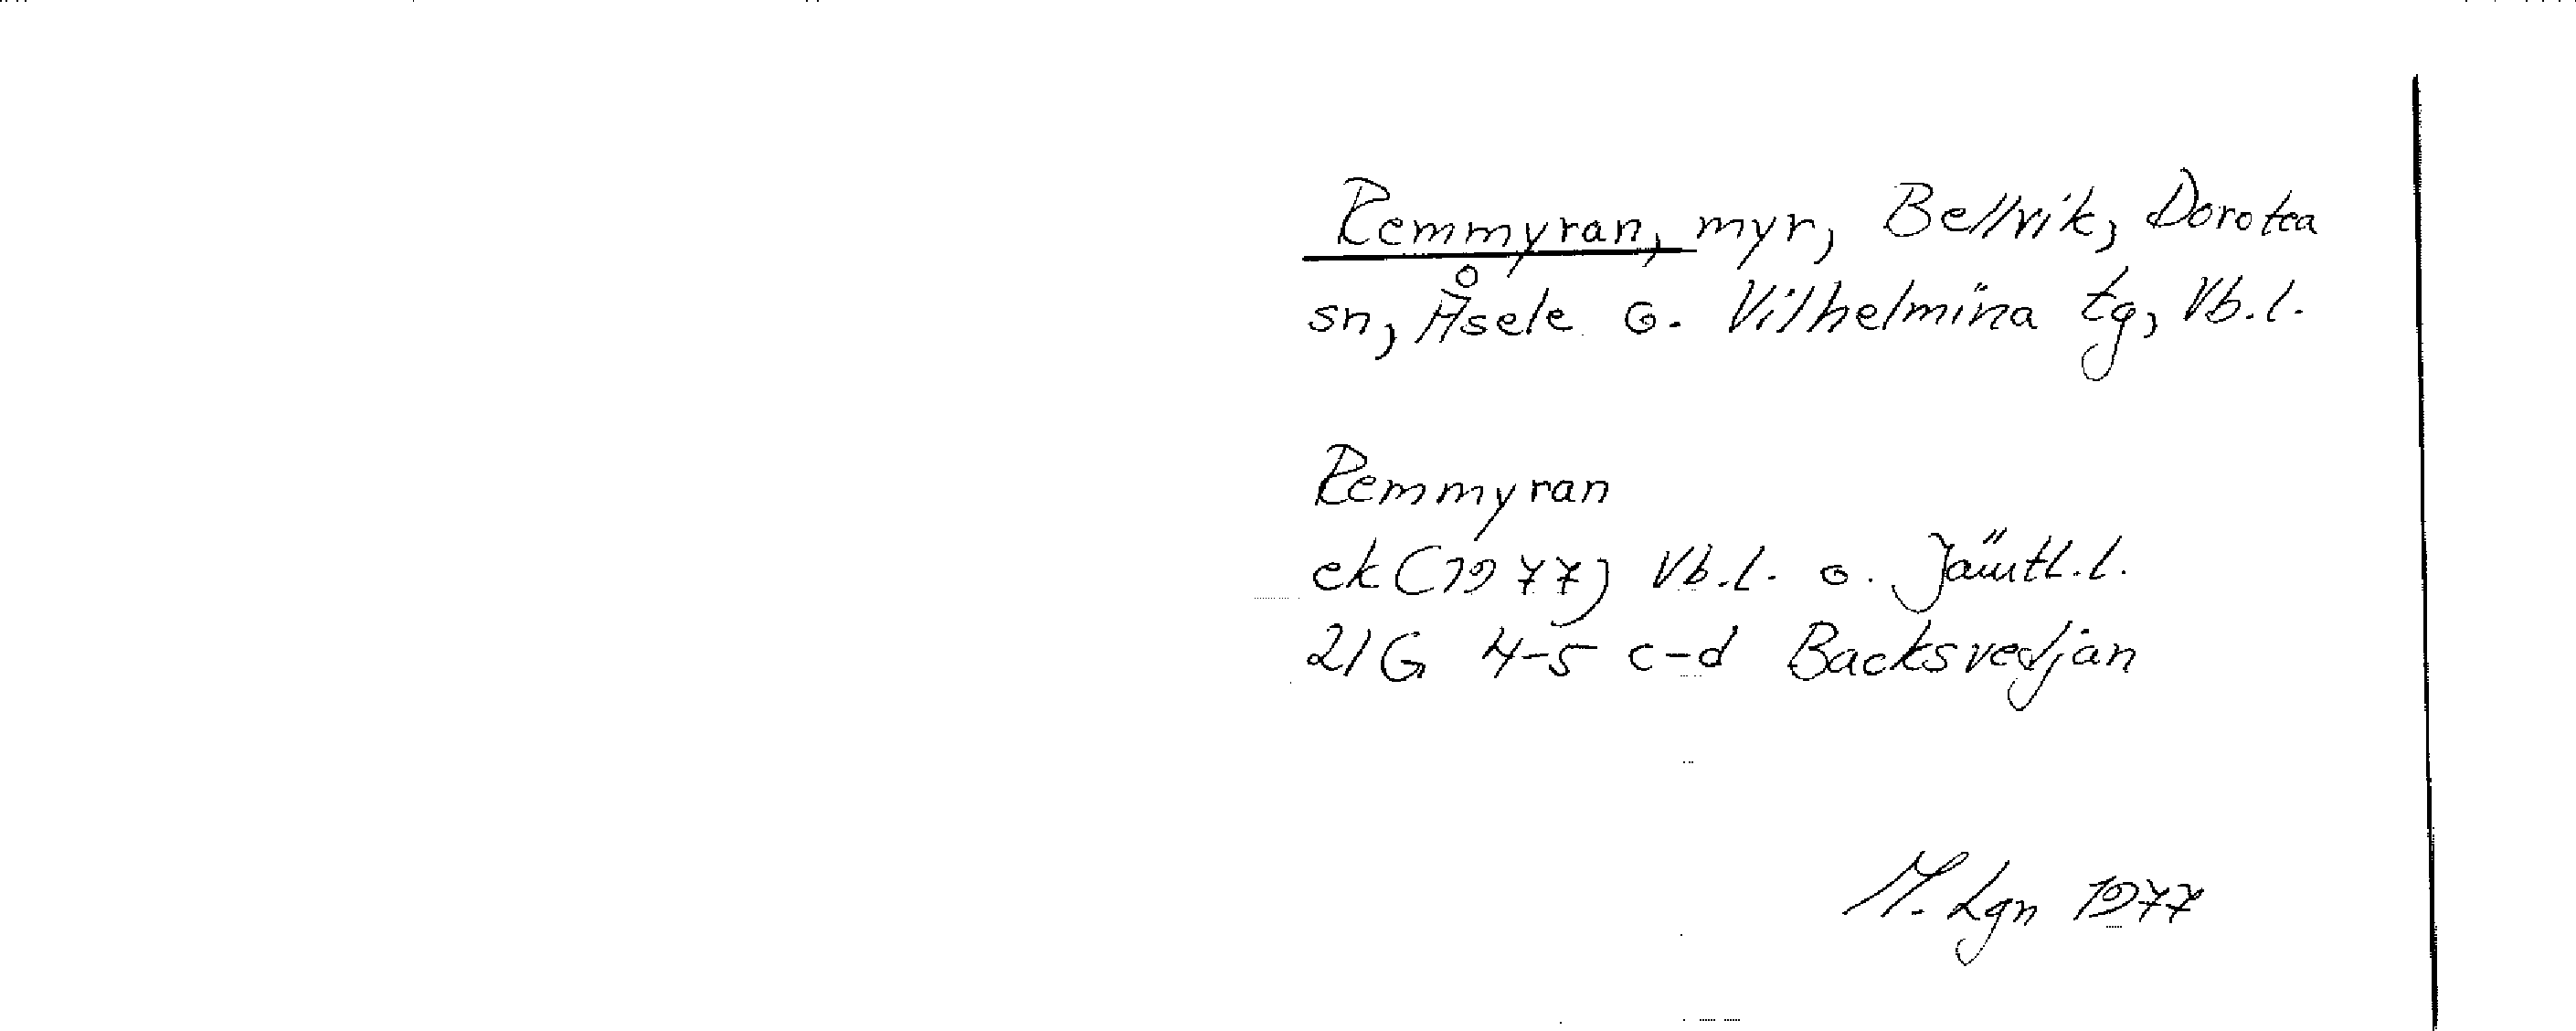 Remmyran, myr, Bellvik, Dorotea
sn, Åsele o. Vilhelmina tg, Vb.l.
Remmyran
ek (1977) Vb.l. o. Jämtl.l.
21G 4-5 c-d Backsvedjan
M. Lgn 1977